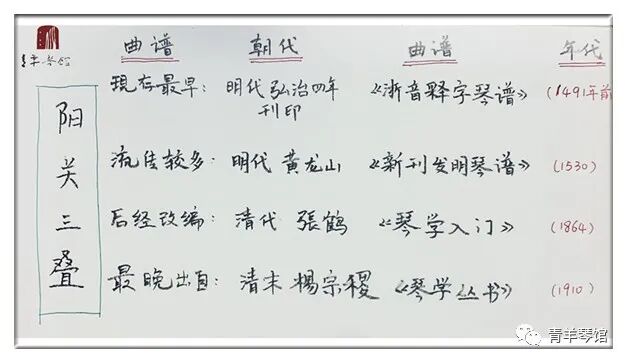 曲谱 朝代 曲谱 年代
阳关三叠
现存最早: 明代弘治四年 《浙音释字琴谱》 (1491年前)
刊印
流传较多: 明代 黄龙山 《新刊发明琴谱》 (1530)
后经改编: 清代 張鹤 《琴学入门》 (1864)
最晚出自: 清末 楊宗稷 《琴学丛书》 (1910)
青羊琴馆